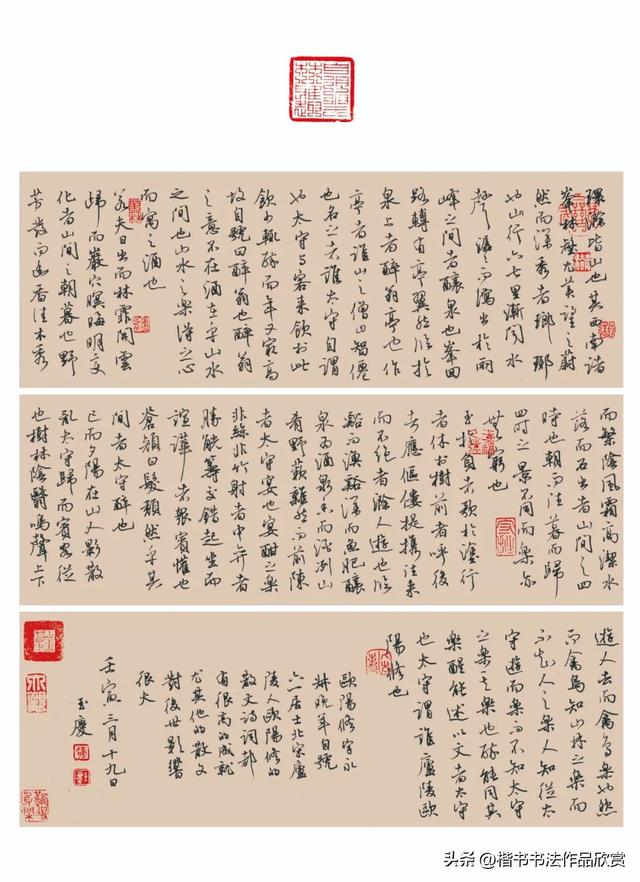 環滁皆山也其西南諸
峯林壑尤美望之蔚
然而深秀者瑯琊
也山行六七里漸聞水
聲潺潺而瀉出於兩
峰之間者釀泉也峯回
路轉有亭翼然臨於
泉上者醉翁亭也作
亭者誰山之僧曰智僊
也名之者誰太守自謂
也太守与客来飲於此
飲少輒醉而年又最高
故自號曰醉翁也醉翁
之意不在酒在乎山水
之間也山水之樂得之心
而寓之酒也
若夫日出而林霏開雲
歸而巖穴暝晦明变
化者山間之朝暮也野
芳發而幽香佳木秀
而繁陰風霜高潔水
落而石出者山間之四
時也朝而往暮而歸
四時之景不同而樂亦
無窮也
至於負者歌於塗行
者休於樹前者呼後
者應傴僂提攜往来
而不絕者滁人遊也臨
谿而漁谿深而魚肥釀
泉为酒泉香而酒洌山
肴野蔌雜然而前陳
者太守宴也宴酣之樂
非絲非竹射者中弈者
勝觥籌交錯起坐而
諠譁者衆賓懽也
蒼顏白髮頹然乎其
間者太守醉也
已而夕陽在山人影散
亂太守歸而賓客從
也樹林陰翳鳴聲上下
遊人去而禽鳥樂也然
而禽鳥知山林之樂而
不知人之樂人知從太
守遊而樂而不知太守
之樂其樂也醉能同其
樂醒能述以文者太守
也太守謂誰廬陵歐
陽修也
歐陽修字永
叔晚年自號
六一居士北宋廬
陵人歐陽修的
散文詩詞都
有很高的成就
尤其他的散文
對後世影響
很大
壬寅三月十九日
玉慶
头条 @楷书书法作品欣赏